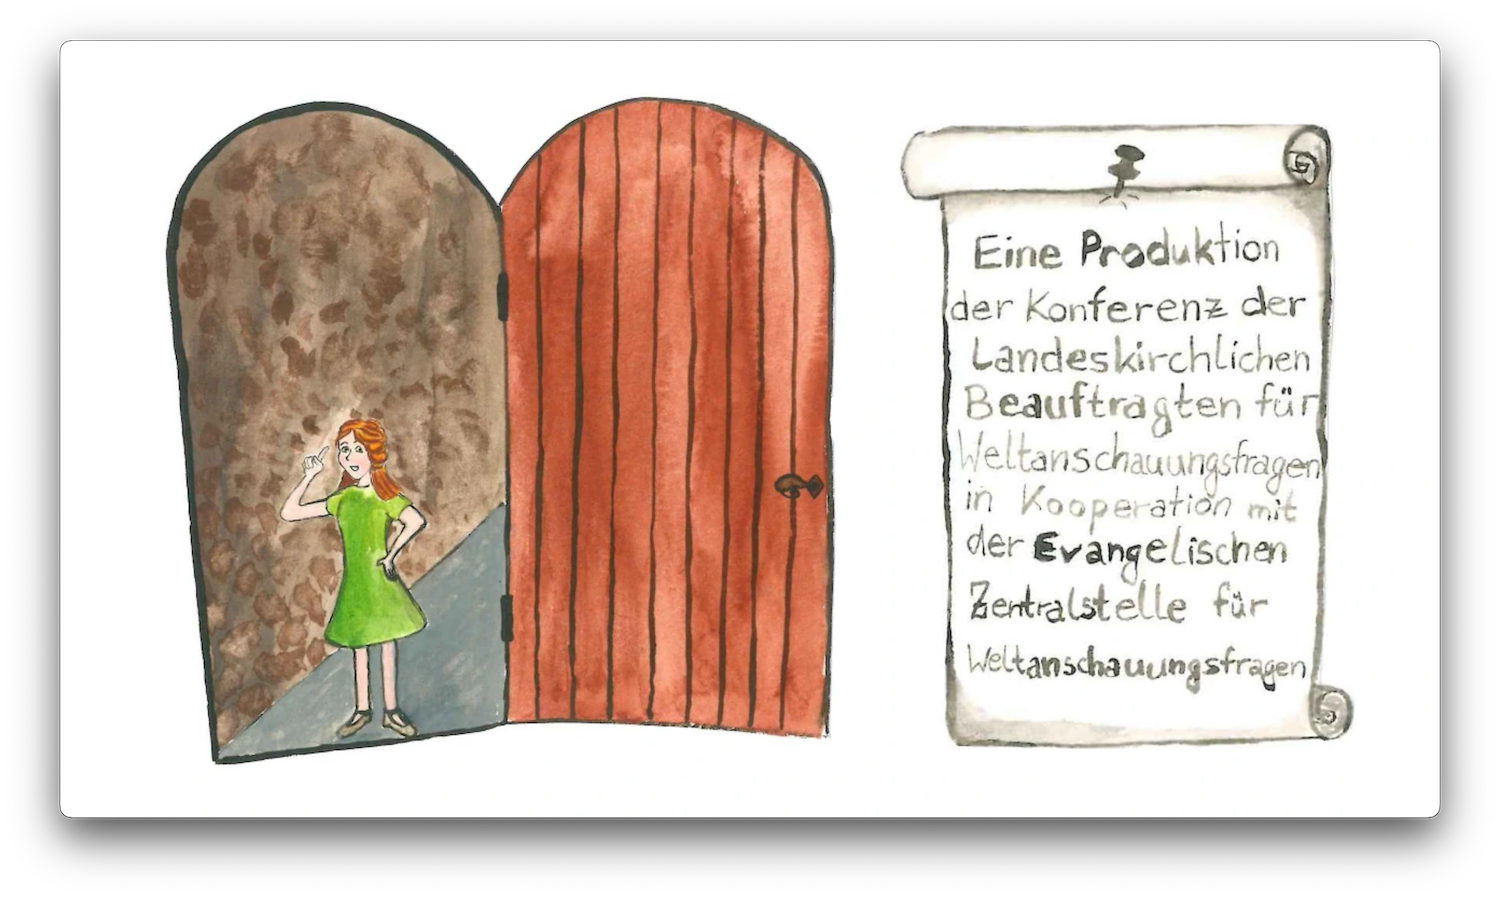 Eine Produktion
der Konferenz der
Landeskirchlichen
Beauftragten für
Weltanschauungsfragen
in Kooperation mit
der Evangelischen
Zentralstelle für
Weltanschauungsfragen